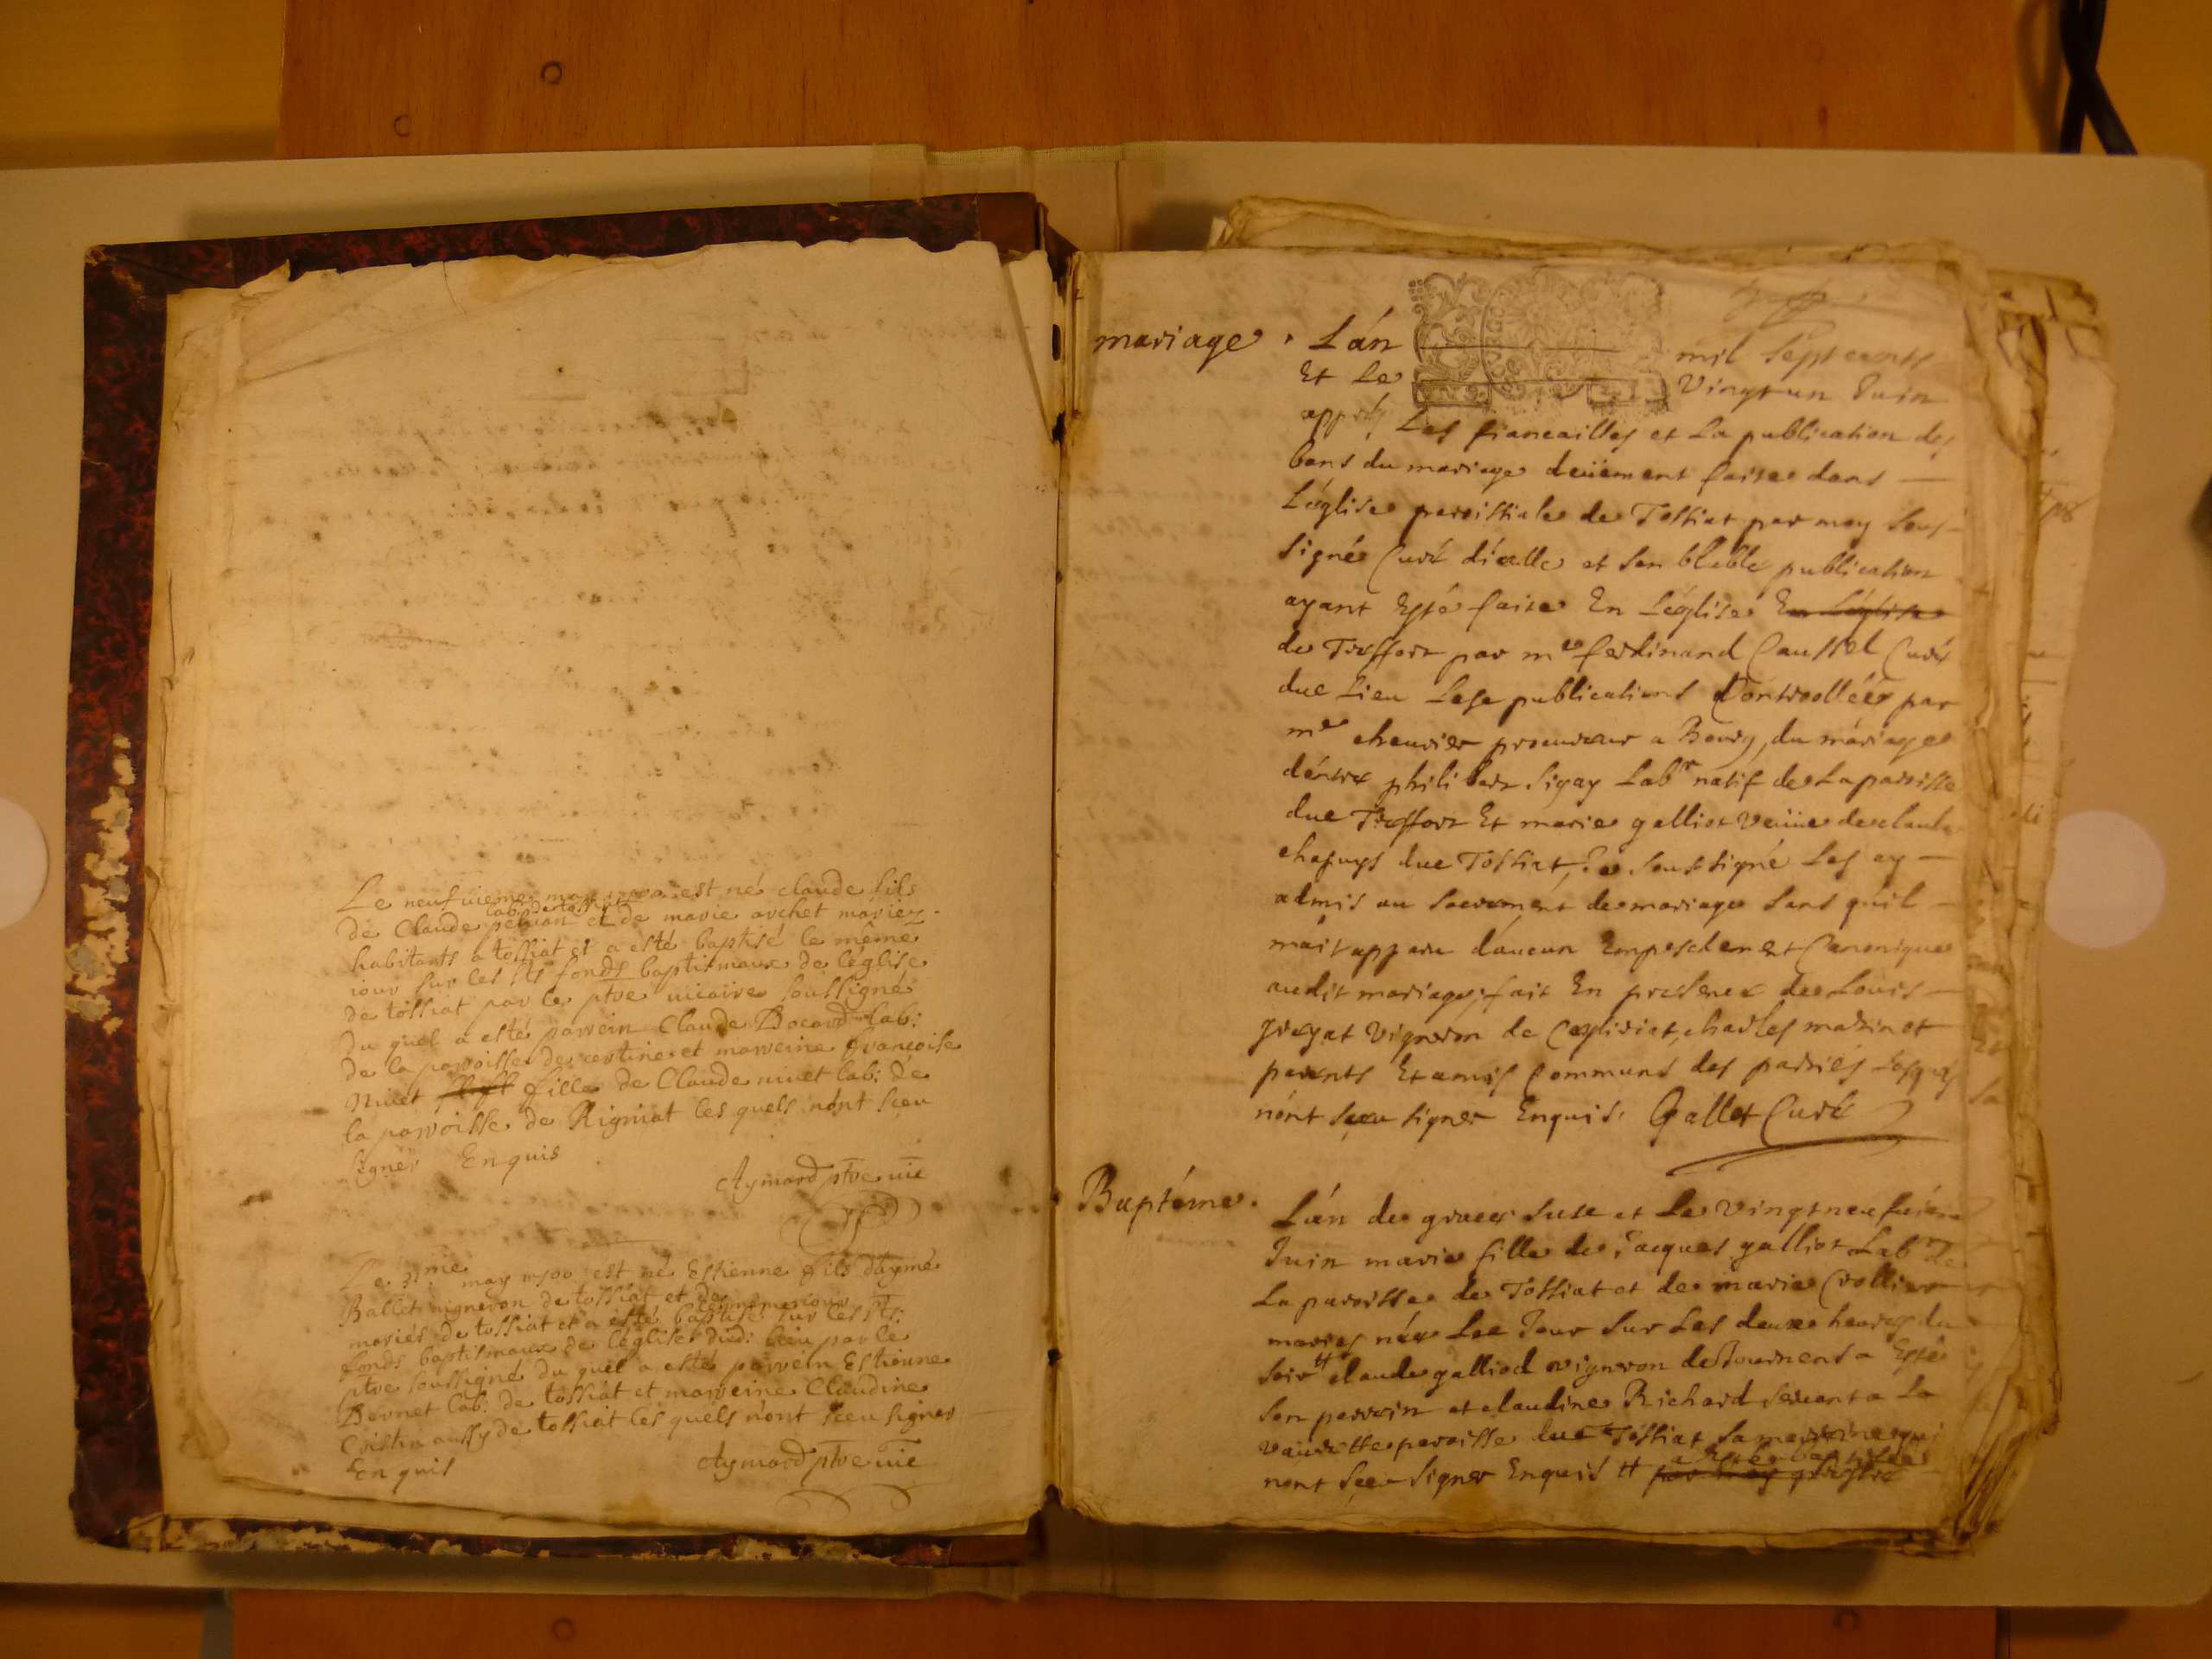 Le neufvieme may 1700 est né claude fils
lab: de tossiat
de Claude et de marie archet mariez
habitants a tossiat et a esté baptisé le même
iour sur les sts fonds baptismaux de léglise
de tossiat par le ptre vicaire soussigné
Du quel a esté parrein Claude Bocard lab:
De la parroisse de certines et marreine françoise
nivet fille de Claude nivet lab: de
la parroisse de Rigniat les quels nont sceu
signer Enquis
Aymard ptre vic
Le 31me may 1700 est né Estienne fils daymé
Ballet vigneron de tossiat et de
mariés de tossiat et a esté baptisé sur les sts:
fonds baptismaux de léglise dud: lieu par le
ptre soussigné du quel a esté parrein Estienne
Bernet lab: de tossiat et marreine Claudine
Cristin aussy de tossiat les quels nont sceu signer
Enquis Aymard ptre vic
mariage. Lán mil Sept cents
Et Le Vingt un Juin
apprés Les fiancailles et La publication des
bans du mariage deüement faite dans
Léglise paroissiale de Tossiat par moy sous-
signé Curé dicelle et semblable publication
ayant Esté faite En Léglise En Léglise
de Treffort par mre ferdinand Caussel Curé
dud Lieu Lesd publications Controollées par
mre chevrier procureur a Bourg, du mariage
déntre philibert Sigay Labr natif de La paroisse
dud Treffort Et marie galliot veüve de claude
chapuys dud Tossiat, Je soussigné Les ay
admis au sacrement de mariage sans quil
máit apparu daucun Empeschement Canonique
audit mariage, fait En presence de Louis
gregat vigneron de Ceyzeriat, charles marinet
parents Et amis Communs des pariés Lesquels
nónt sceu signer Enquis. Gallet Curé
Baptéme. Lán de grace susd et Le vingt neufuiéme
Juin marie fille de Jacques galliot Labr de
La paroisse de Tossiat et de marie Crollier
mariés née Led Jour sur Les deux heures du
soir # claude galliod vigneron de Journens a Esté
son parrain et claudine Richard servant a La
vavrette paroisse dud Tóssiat sa marraine qui
a Esté baptisée
nont sceu signer Enquis # par moy